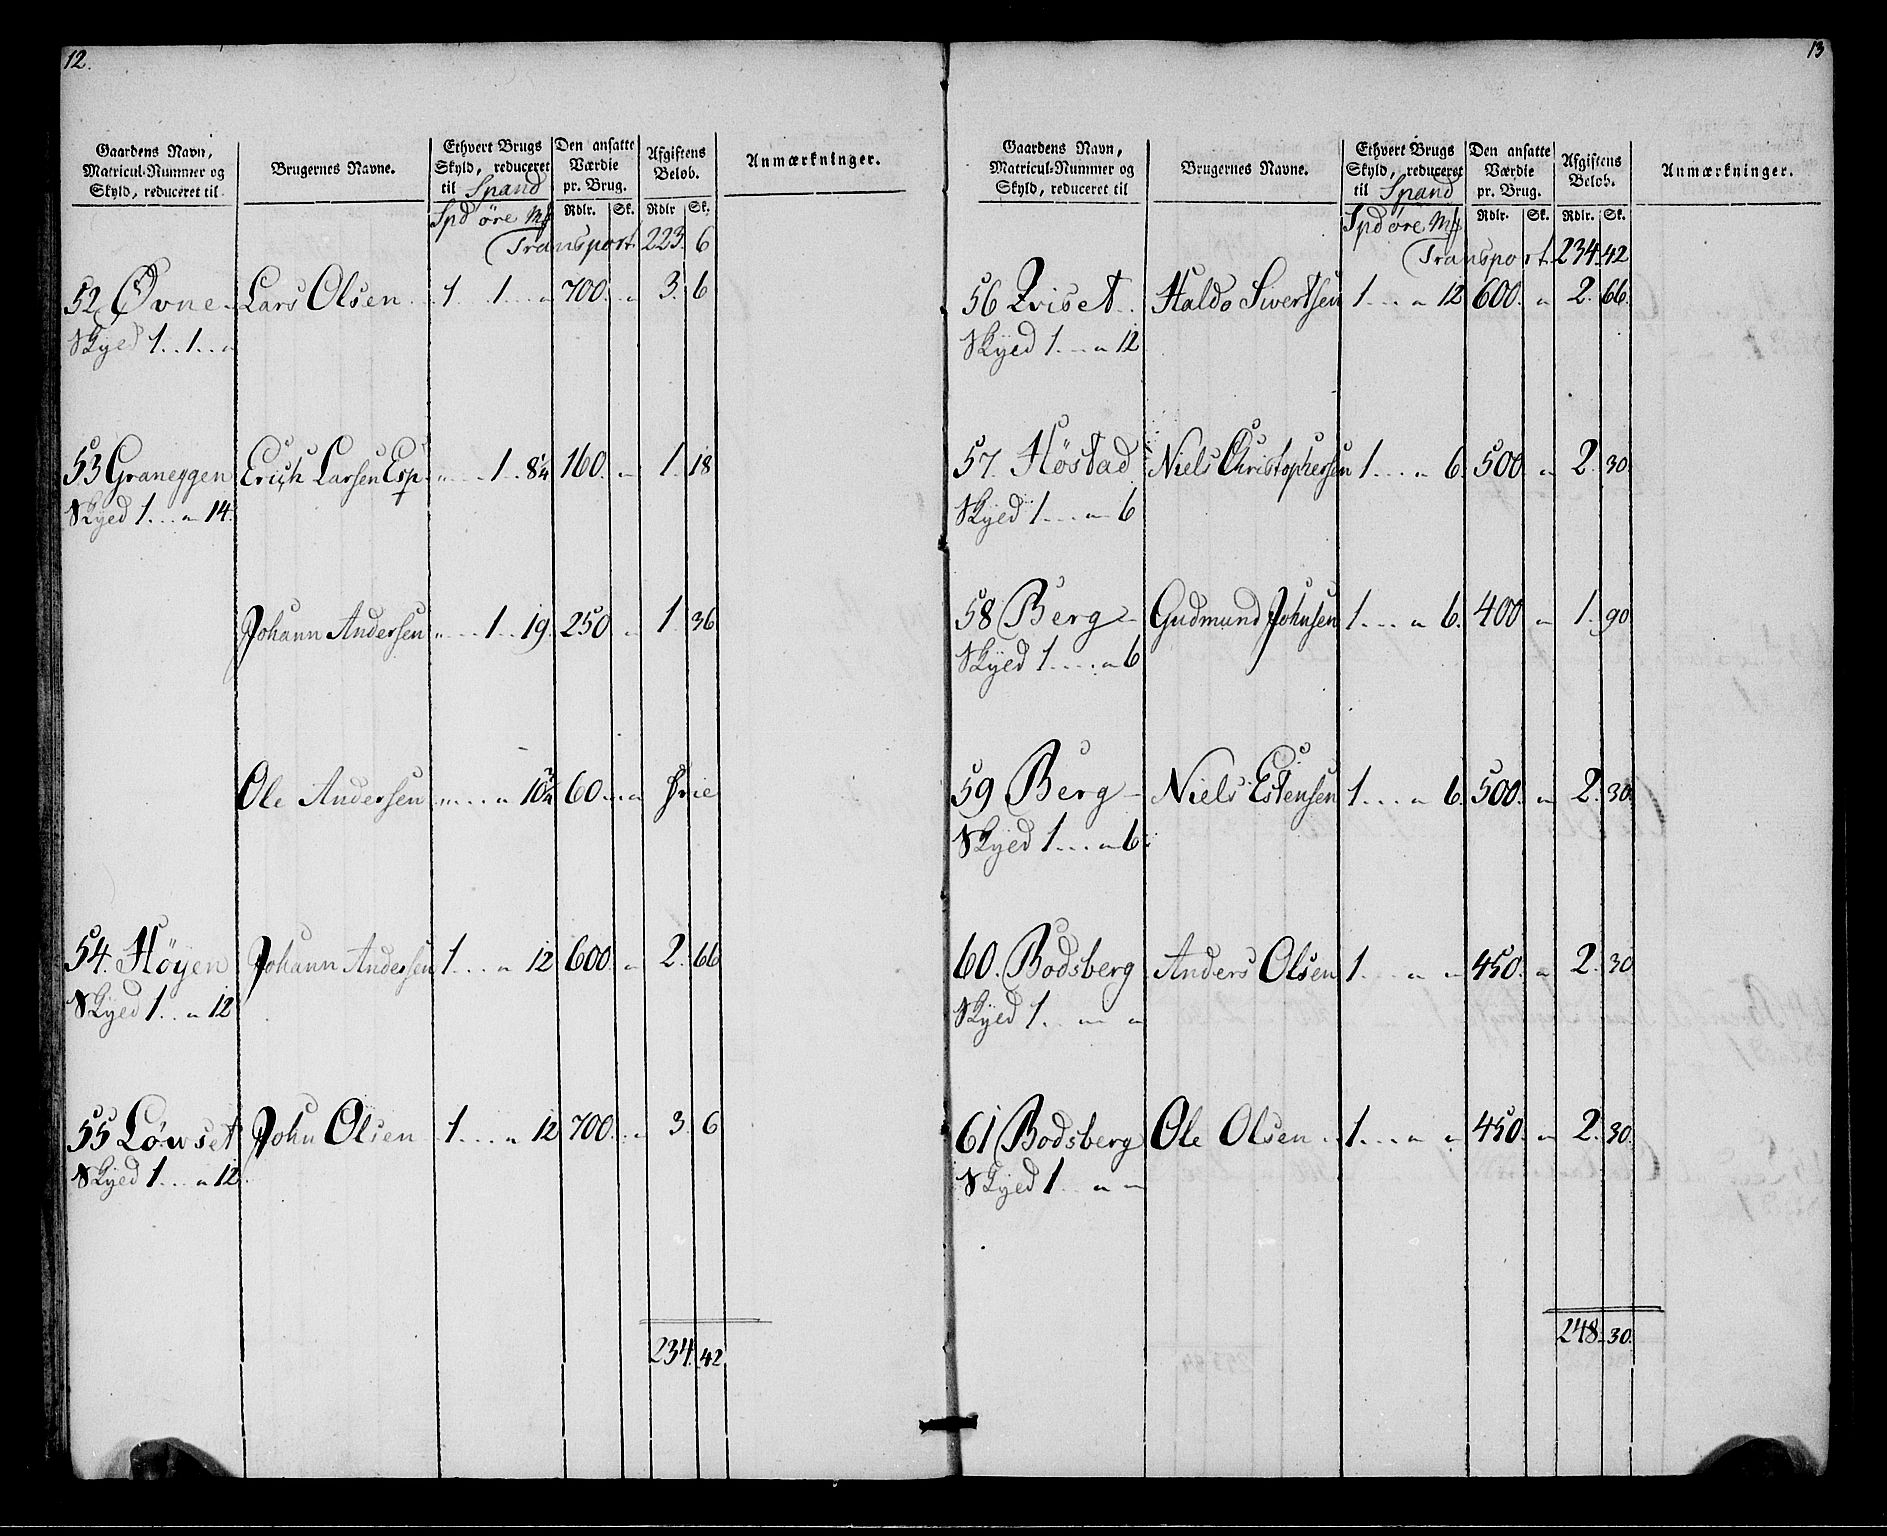 12.
Gaardens Navn, Matricul-Nummer og Skyld, reduceret til
Brugernes Navne.
Ethvert Brugs Skyld, reduceret til Spand
Den ansatte Værdie pr. Brug.
Afgiftens Beløb.
Anmærkninger.
Spd øre Mk
Rdlr. Sk. Rdlr Sk.
Transport 223. 6
52 Øvne Lars Olsen 1 1 " 700. " 3. 6
Skyld 1..1.. "
53 Graneggen Erich Larsen Esp. " 1. 8¼ 160. " 1. 18
Skyld 1... " 14.
Johann Andersen " 1.. 19. 250 " 1. 36
Ole Andersen " " 10¾ 60 " frie
54. Høyen Johann Andersen 1... " 12 600. " 2. 66
Skyld 1... " 12
55 Löwset John Olsen 1... " 12 700. " 3. 6
Skyld 1... " 12.
234. 42
13
Gaardens Navn, Matricul-Nummer og Skyld, reduceret til
Brugernes Navne.
Ethvert Brugs Skyld, reduceret til Spand
Den ansatte Værdie pr. Brug.
Afgiftens Beløb.
Anmærkninger.
Spd øre Mk
Rdlr. Sk. Rdlr. Sk.
Transport. 234. 42
56 Qviset Haldo Sivertsen 1... " 12 600. " 2. 66.
Skyld 1... " 12
57. Høstad Niels Christophersen 1... " 6. 500 " 2. 30.
Skyld 1... " 6
58 Berg Gudmund Johnsen 1... " 6. 400 " 1. 90.
Skyld 1... " 6
59 Berg Niels Estensen 1... " 6. 500. " 2. 30.
Skyld 1... " 6.
60. Bodsberg Anders Olsen 1... " " 450. " 2. 30
Skyld 1.. " "
61 Bodsberg Ole Olsen 1... " " 450. " 2. 30.
Skyld 1.. " "
248. 30.